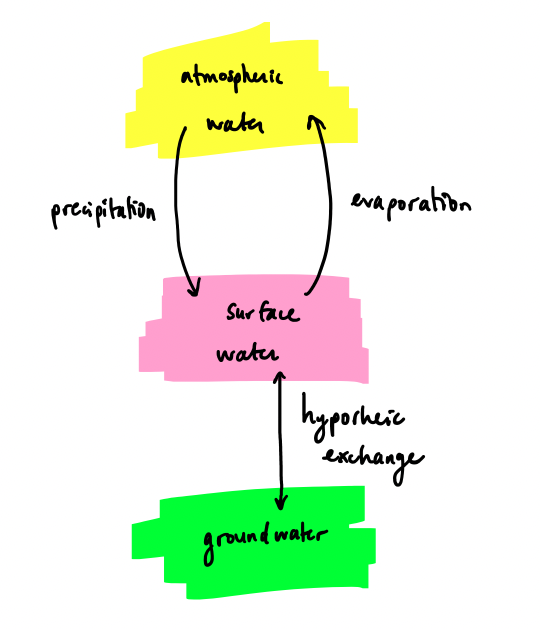 atmospheric
water
precipitation
evaporation
surface
water
hyporheic
exchange
groundwater